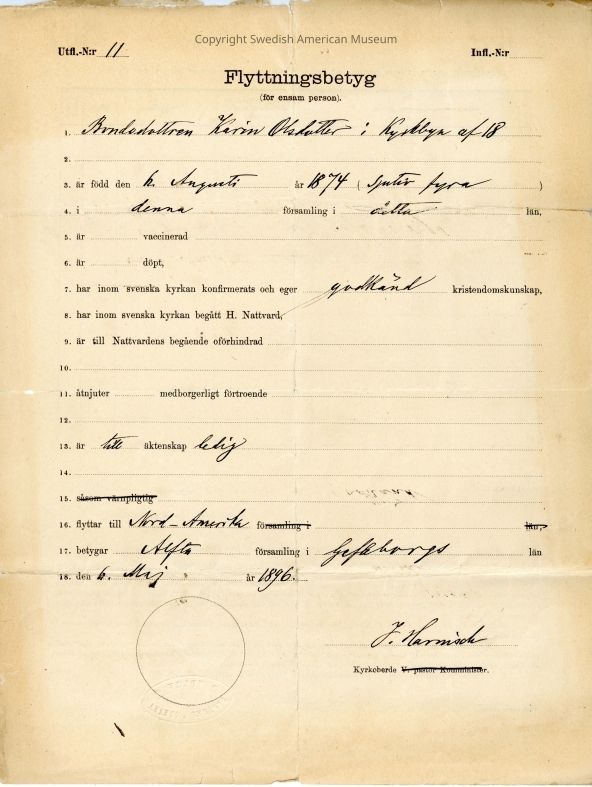 Copyright Swedish American Museum
Utfl.-N:r 11 Infl.-N:r
Flyttningsbetyg
(för ensam person).
1. Bondedottren Karin Olsdotter i Kyrkbyn af 18
2.
3. är född den 6. Augusti år 1874 ( sjutio fyra )
4. i denna församling i detta län,
5. är vaccinerad
6. är döpt,
7. har inom svenska kyrkan konfirmerats och eger godkänd kristendomskunskap,
8. har inom svenska kyrkan begått H. Nattvard,
9. är till Nattvardens begående oförhindrad
10.
11. åtnjuter medborgerligt förtroende
12.
13. är till äktenskap ledig
14.
15. såsom värnpligtig
16. flyttar till Nord-Amerika församling i län,
17. betygar Alfta församling i Gefleborgs län
18. den 6. Maj år 1896.
J. Harnisch
Kyrkoherde V. pastor Komminister.